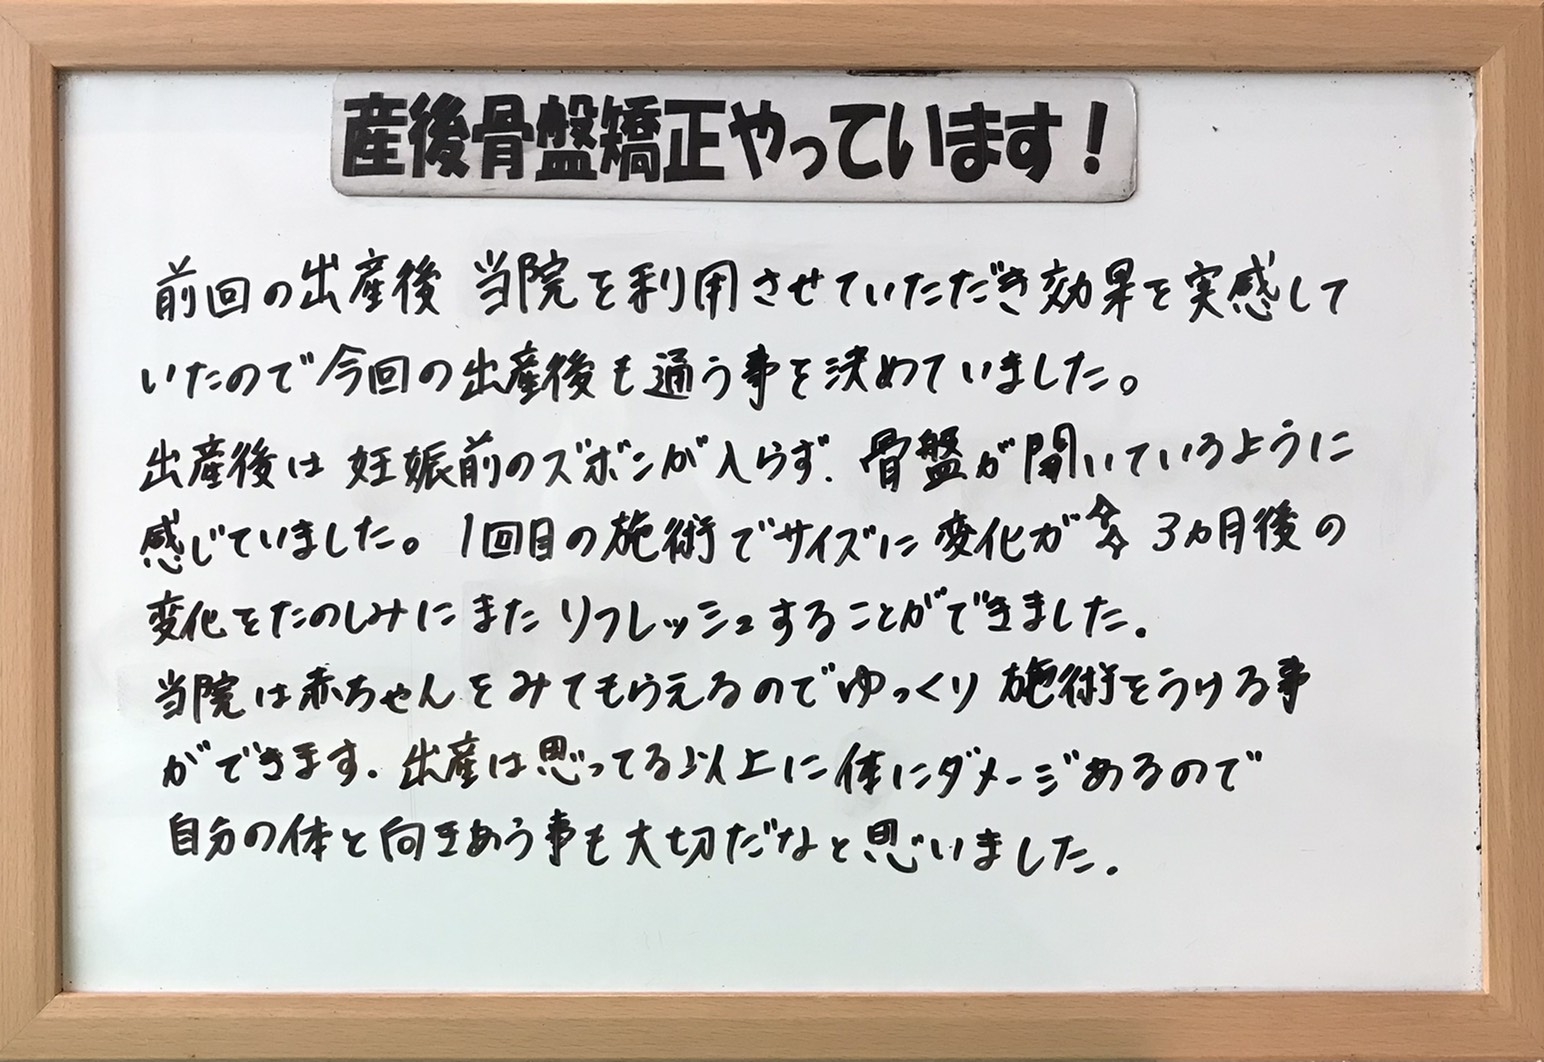 産後骨盤矯正やっています！
前回の出産後 当院を利用させていただき効果を実感して
いたので今回の出産後も通う事を決めていました。
出産後は妊娠前のズボンが入らず、骨盤が開いているように
感じていました。1回目の施術でサイズに変化が☆☆ 3ヵ月後の
変化をたのしみにまたリフレッシュすることができました。
当院は赤ちゃんをみてもらえるのでゆっくり施術をうける事
ができます。出産は思ってる以上に体にダメージあるので
自分の体と向きあう事も大切だなと思いました。